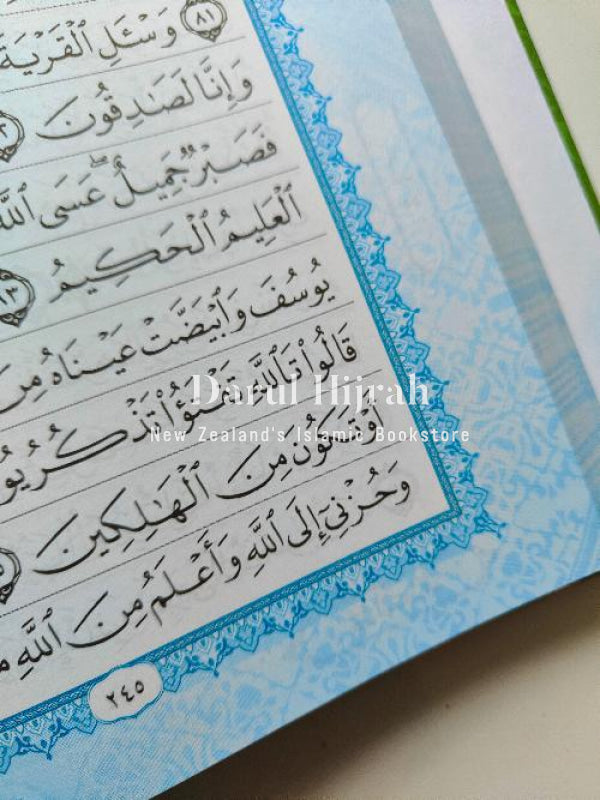 ٨١ وَسْـَٔلِ ٱلْقَرْيَةَ
وَإِنَّا لَصَٰدِقُونَ
فَصَبْرٌ جَمِيلٌ ۖ عَسَى ٱللَّهُ
ٱلْعَلِيمُ ٱلْحَكِيمُ ٨٣
يُوسُفَ وَٱبْيَضَّتْ عَيْنَاهُ مِنَ
قَالُوا۟ تَٱللَّهِ تَفْتَؤُا۟ تَذْكُرُ يُو
أَوْ تَكُونَ مِنَ ٱلْهَٰلِكِينَ
وَحُزْنِىٓ إِلَى ٱللَّهِ وَأَعْلَمُ مِنَ ٱللَّهِ
٢٤٥
Darul Hijrah
New Zealand's Islamic Bookstore